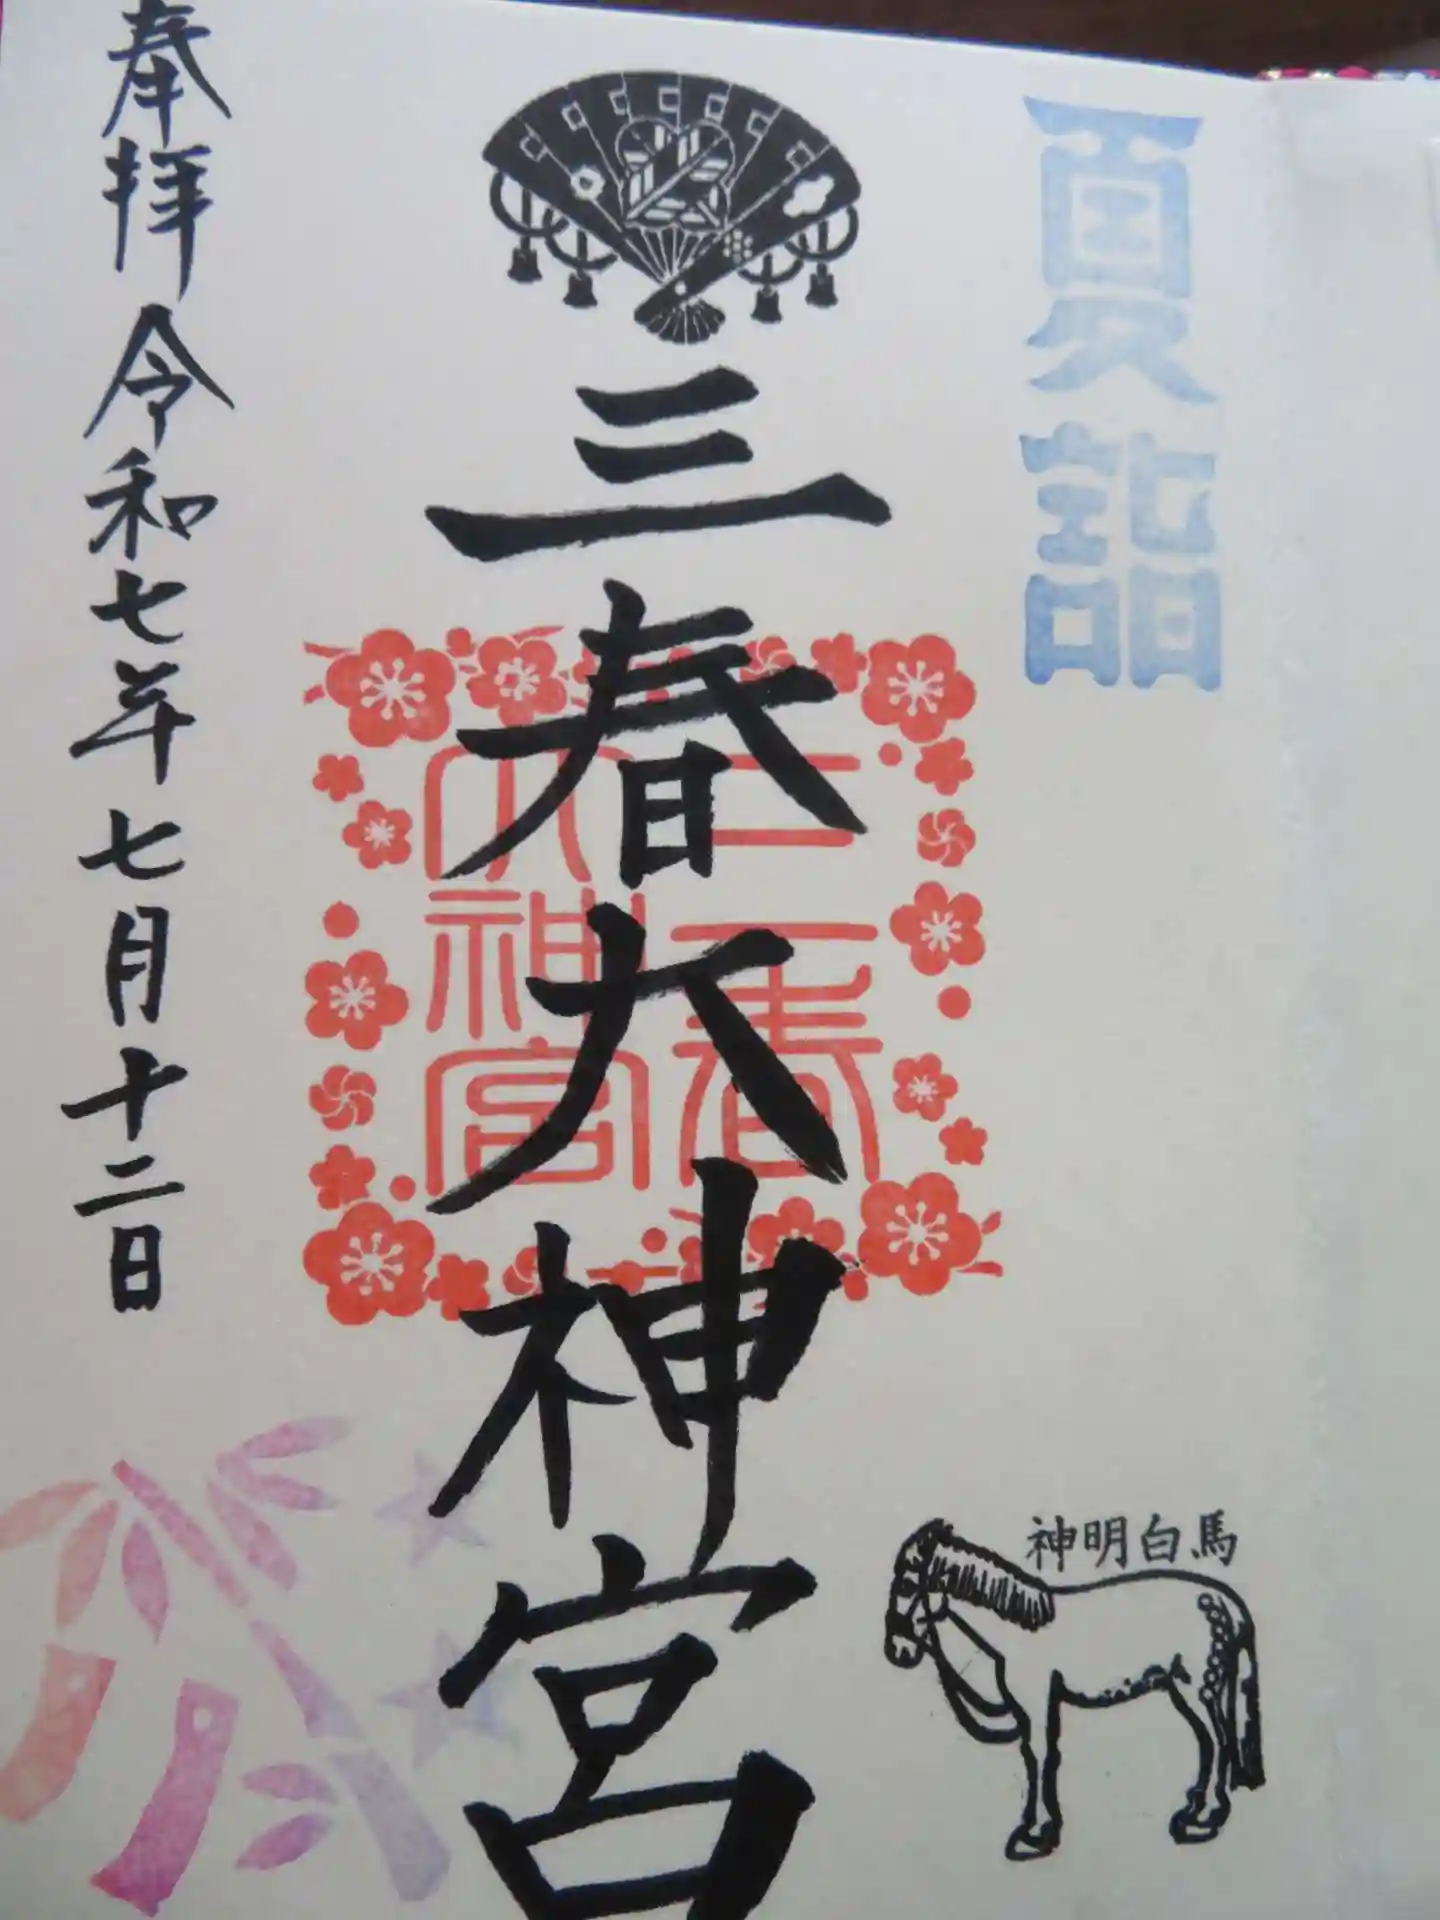 夏詣
神明白馬
三春大神宮
三春
大神宮
奉拝 令和七年七月十二日